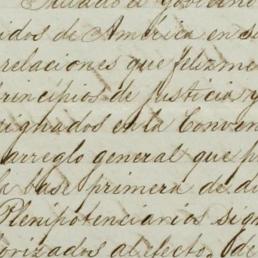 Gobierno
idos de América en s
relaciones que felizme
principios de justicia y
signados en la Conven
arreglo general que p
la base primera de a
Plenipotenciarios sig
orizados al efecto, de